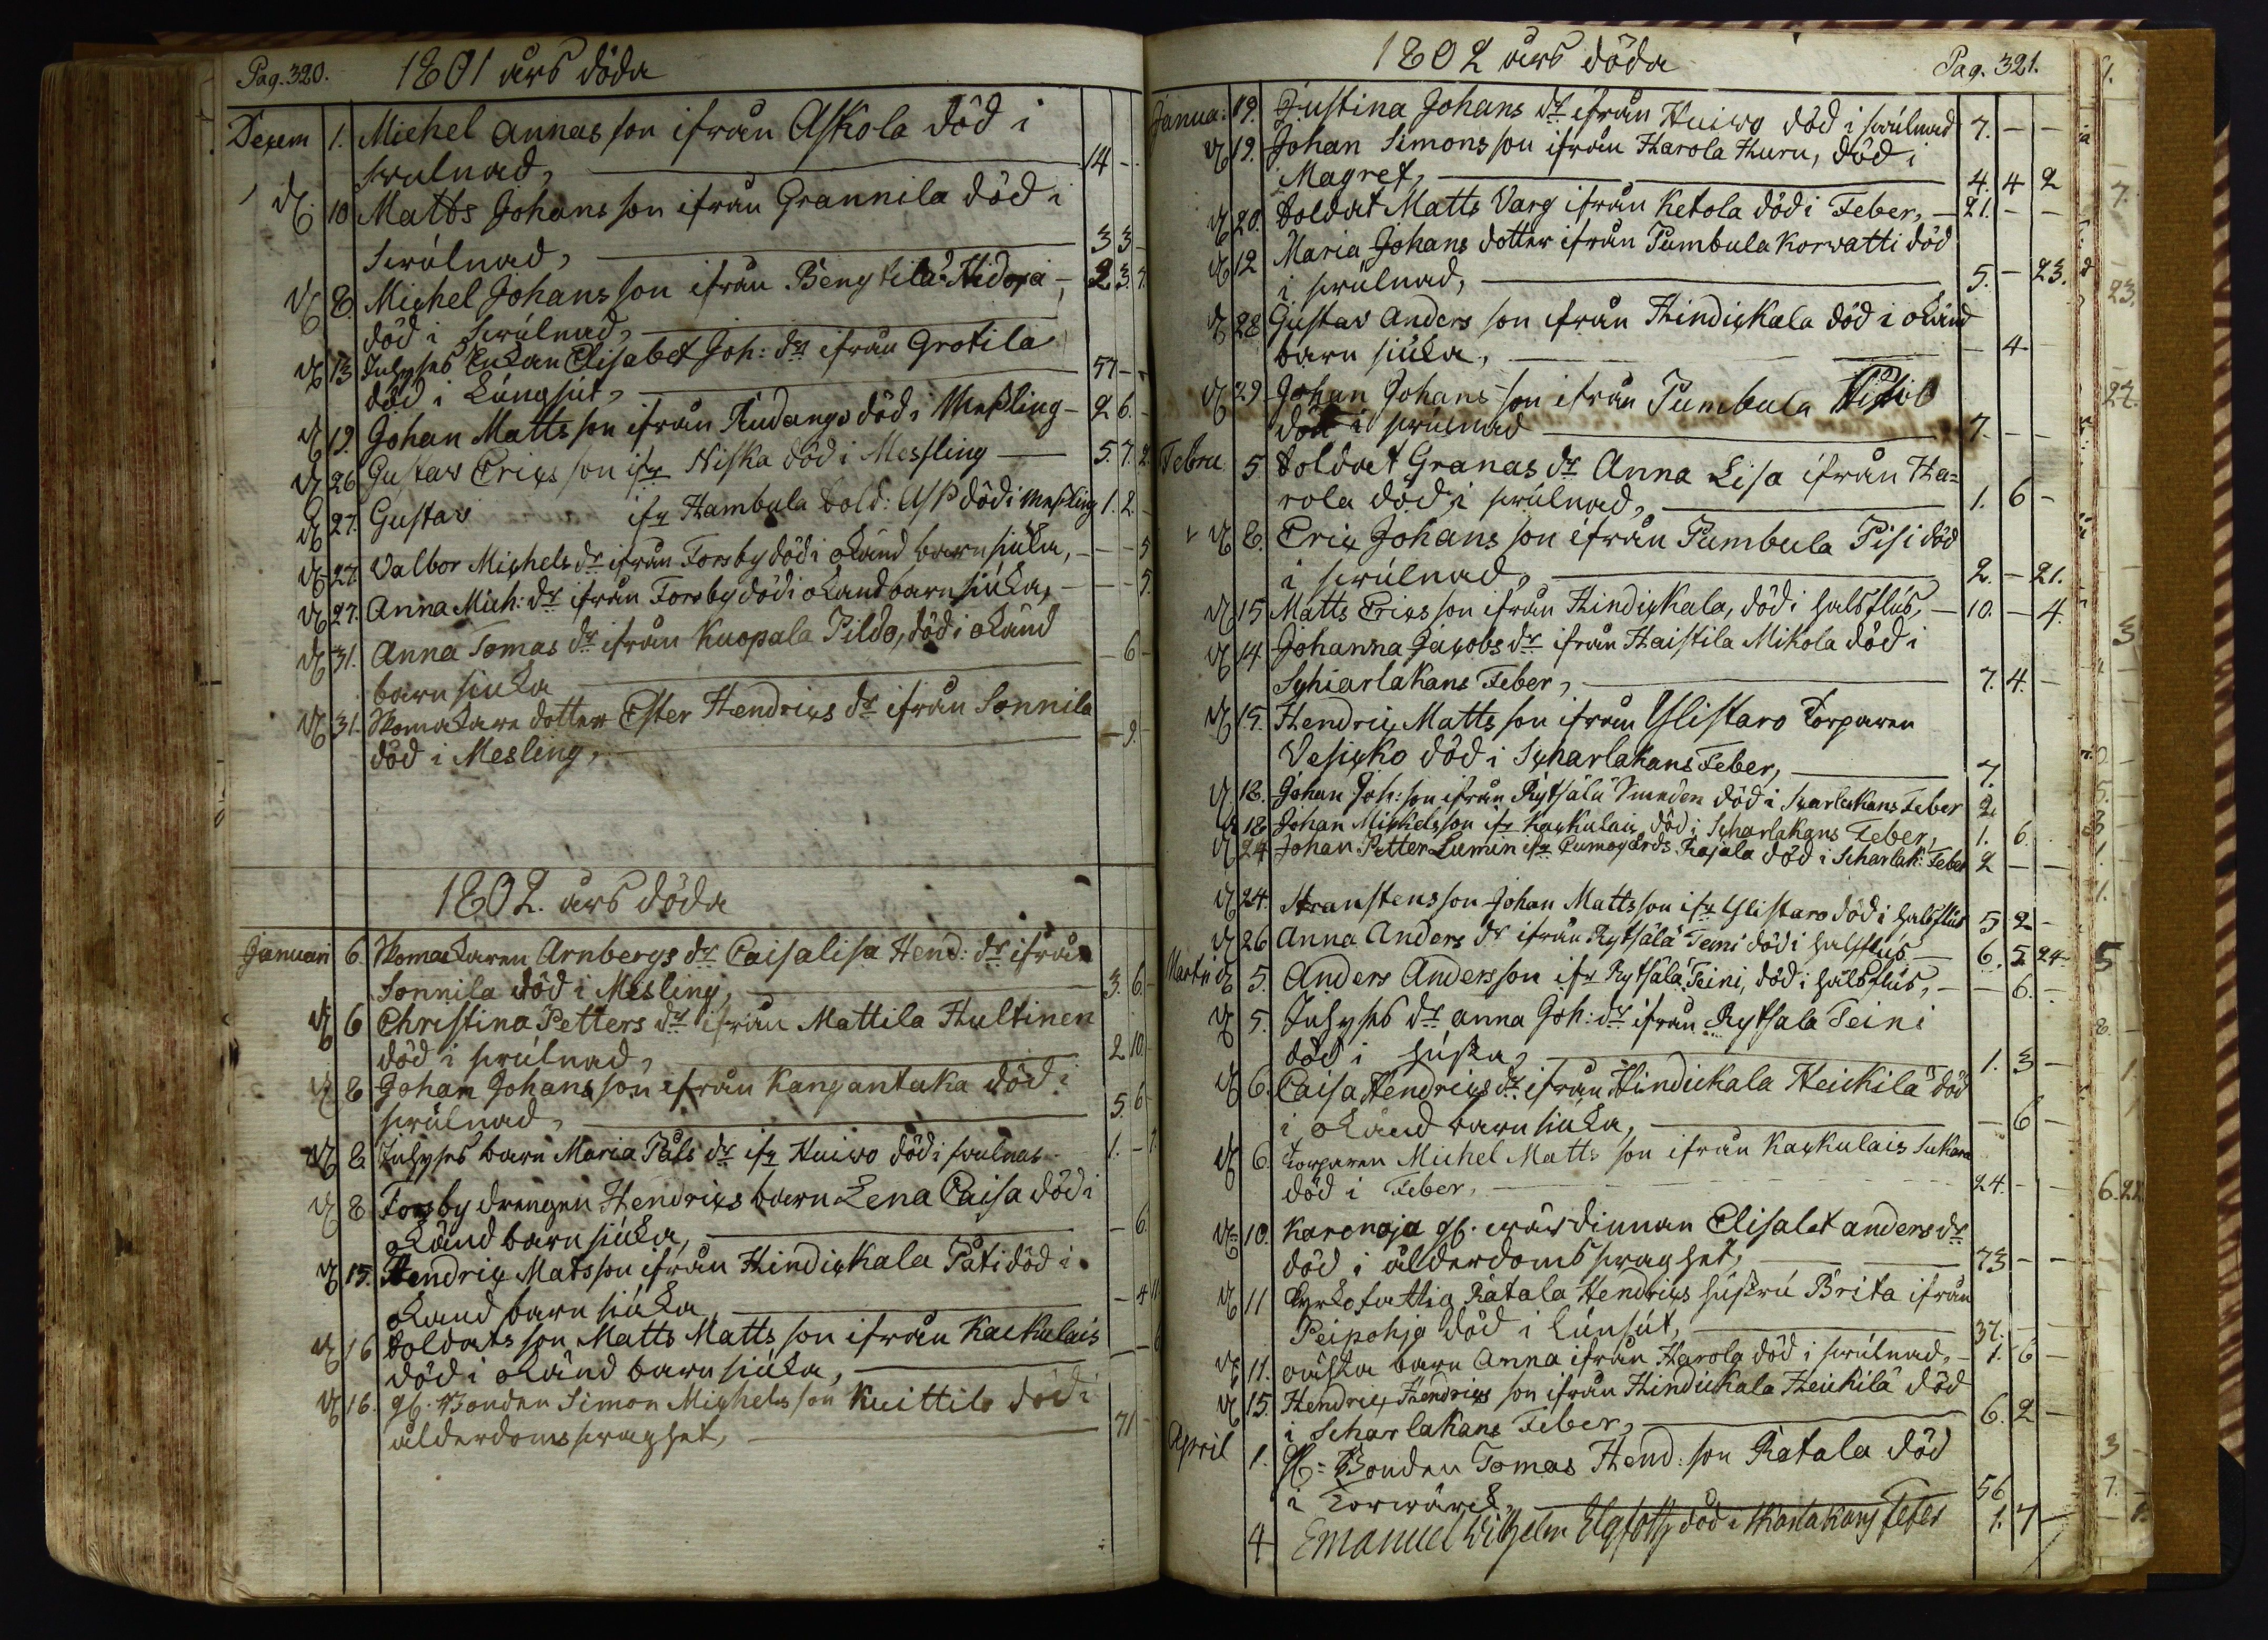 Pag. 320. 1801 års döda
Decem 1. Michel Annas son ifrån Askola död i
swulnad, 14 -
d. 10 Matts Johans son ifrån Grannila död i
swúlnad, 3 3 -
d. 8. Michel Johans son ifrån Bengtilä Hidoja 2 3. 7.
död i swúlnad,
d. 13 Inhyses Enkan Elisabet Joh: dr ifrån Grotila
död i Lúngsút, 57 - -
d. 19. Johan Matts son ifrån Rudangs död i Meßling - 2 6. -
d. 26 Gustav Erics son ifr Niska död i Messling 5. 7. 2.
d. 27. Gustav ifr Hambula Sold: Asp död i Meßling 1. 2. -
d. 27. Valbor Michels dr ifrån Forsby död i okänd barnsiúka, - - 5
d. 27. Anna Mich: dr ifrån Forsby död i okand barnsiúka, - - 5.
d. 31. Anna Tomas dr ifrån Kuopala Pildo, död i okänd
barnsiuka - 6 -
d. 31. Skomakare dotter Ester Hendrics dr ifrån Sonnila
död i Mesling, - 9. -
1802. års döda
Januari 6. Skomakaren Arnbergs dr Caisalisa Hend: dr ifrån
Sonnila död i Mesling, 3. 6. -
d. 6 Christina Petters dr ifrån Mattila Hultinen
död i swúlnad, 2 10. -
d. 8 Johan Johans son ifrån Kangantaka död i
swúlnad, 5. 6 -
d. 8. Inhyses barn Maria Påls dr ifr Huiwo död i swulnad 1. - 7
d. 8 Forsby drengen Hendrics barn Lena Caisa död i
okänd barnsiúka, - 6.
d. 15. Hendric Matsson ifrån Hindickala Påti död i
okand barnsiúka, - 4 11
d. 16 Soldats son Matts Matts son ifrån Kackulais
död i okänd barnsiúka, - - 6
d. 16. gl. Bonden Simon Michelsson Kuittilo död i
ålderdoms swaghet, 71 -
1802 års döda Pag. 321.
Janua: 19. Justina Johans dr ifrån Huiwo död i swúlnad 7. - -
d. 19. Johan Simons son ifrån Harola Huru, död i
Magret, 4. 4 2
d. 20. Soldat Matts Varg ifrån Ketola död i Feber, - 21. - -
d. 12 Maria Johans dotter ifrån Pumbula Korwatti död
i swúlnad, 5. - 23.
d. 28 Gustav Anders son ifrån Hindickala död i okänd
barn siúka, - 4 -
d. 29 Johan Johans son ifrån Pumbula
död i swúlnad 7. - -
Febru 5 Soldat Granas dr Anna Lisa ifrån Ha=
rola död i swúlnad, 1. 6 -
d. 8. Eric Johans son ifrån Pumbula Pisi död
i swúlnad, 2. - 21.
d. 15 Matts Ericsson ifrån Hindickala, död i halsflús, - 10. - 4.
d. 14 Johanna Jacobs dr ifrån Haistila Mikola död i
Schiarlakans Feber, 7. 4. -
d. 15. Hendric Matts son ifrån Ylistaro Torparen
Vesicko död i Scharlakans Feber, 7.
d. 18. Johan Joh: son ifrån Rytsälä Smeden död i Scarlakans Feber 2
d. 18 Johan Michelsson ifr Kackulais död i Scharlakans Feber, 1. 6.
d. 24 Johan Petter Lumin ifr Cumogårds Rajala död i Scharlak: Feber 2 - -
d. 24. Stranstensson Johan Mattsson ifr Ylistaro död i halsflús 5 2 -
d. 26 Anna Anders dr ifrån Rytsälä Teini död i halsflús - 6. 5 24-
Martii d. 5. Anders Andersson ifr Rytsälä Teini, död i halsflús, - - 6. -
d. 5. Inhyses dr Anna Joh: dr ifrån Rytsala Teini
död i húska, 1. 3 -
d. 6. Caisa Hendrics dr ifrån Hindickala Heickilä död
i okänd barnsiúka, - 6 -
d. 6. Torparen Michel Matts son ifrån Kackulais Sukara
död i Feber, 24. - -
d. 10. Karonoja gl. wärdinnan Elisabet Anders dr
död i ålderdoms swaghet, 73 - -
d. 11 Kyrkofattig Rätala Hendrics hústrú Brita ifrån
Peipohja död i Lúnsút, 37. - -
d. 11. oäkta barn Anna ifrån Harola död i swúlnad, - 1. 6 -
d. 15. Hendric Hendrics son ifrån Hindickala Heickilä död
i Scharlakans Feber, 6. 2 -
April 1. gl: Bonden Tomas Hend: son Rätala död
i Torwärck, 56
4 Emanuel Wilhelm död i Skarlakans feber 1. 7 -